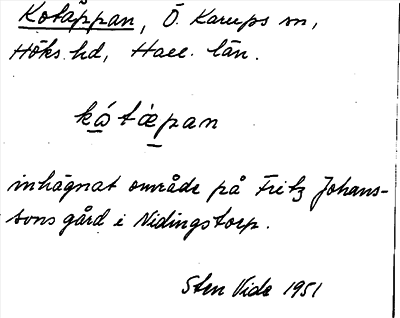 Kotäppan, Ö. Karups sn,
Höks hd, Hall. län.
kó̱tàpan
inhägnat område på Fritz Johans-
sons gård i Nidingstorp.
Sten Vide 1951